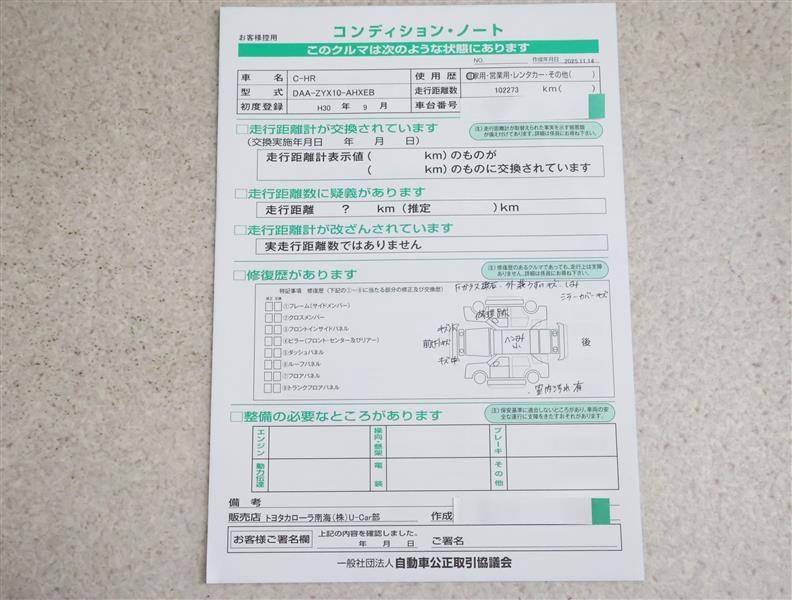 お客様控用
コンディション・ノート
このクルマは次のような状態にあります
NO. 作成年月日 2025.11.14
車名 C-HR 使用歴 自家用・営業用・レンタカー・その他( )
型式 DAA-ZYX10-AHXEB 走行距離数 102273 km( )
初度登録 H30 年 9 月 車台番号
□走行距離計が交換されています
(注)走行距離計が取替えられた事実を示す帳票類が備え付けてあります。詳細は係員にお尋ね下さい。
(交換実施年月日 年 月 日)
走行距離計表示値( km)のものが
( km)のものに交換されています
□走行距離数に疑義があります
走行距離 ? km(推定 )km
□走行距離計が改ざんされています
実走行距離数ではありません
□修復歴があります
(注)修復歴のあるクルマであっても、走行上は支障ありません。詳細は係員にお尋ね下さい。
特記事項 修復歴(下記の①~⑧に当たる部分の修正及び交換歴)
修正 交換
①フレーム(サイドメンバー)
②クロスメンバー
③フロントインサイドパネル
④ピラー(フロント・センター及びリアー)
⑤ダッシュパネル
⑥ルーフパネル
⑦フロアパネル
⑧トランクフロアパネル
Fガラス飛石・外装うすいキズ・しみ
ミラーカバーキズ
補修跡
前
ヘコミ小
後
キズ中
・室内汚れ有
□整備の必要なところがあります
(注)保安基準に適合しないところがあり、車両の安全な運行に支障をきたすおそれがあります。
エンジン 操向・懸架 ブレーキ
動力伝達 電装 その他
備考
販売店 トヨタカローラ南海(株)U-Car部 作成
お客様ご署名欄 上記の内容を確認しました。
年 月 日 ご署名
一般社団法人 自動車公正取引協議会